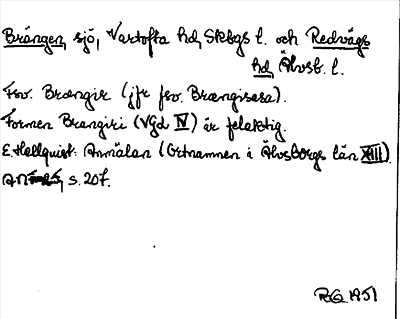 Brängen, sjö, Vartofta hd, Skbgs l. och Redvägs
hd, Älvsb. l.
Fsv. Brængir (jfr fsv. Brængisasa).
Formen Brangiri (VGd IV) är felaktig.
E. Hellquist: Anmälan (Ortnamnen i Älvsborgs län XIII).
s. 207.
1951